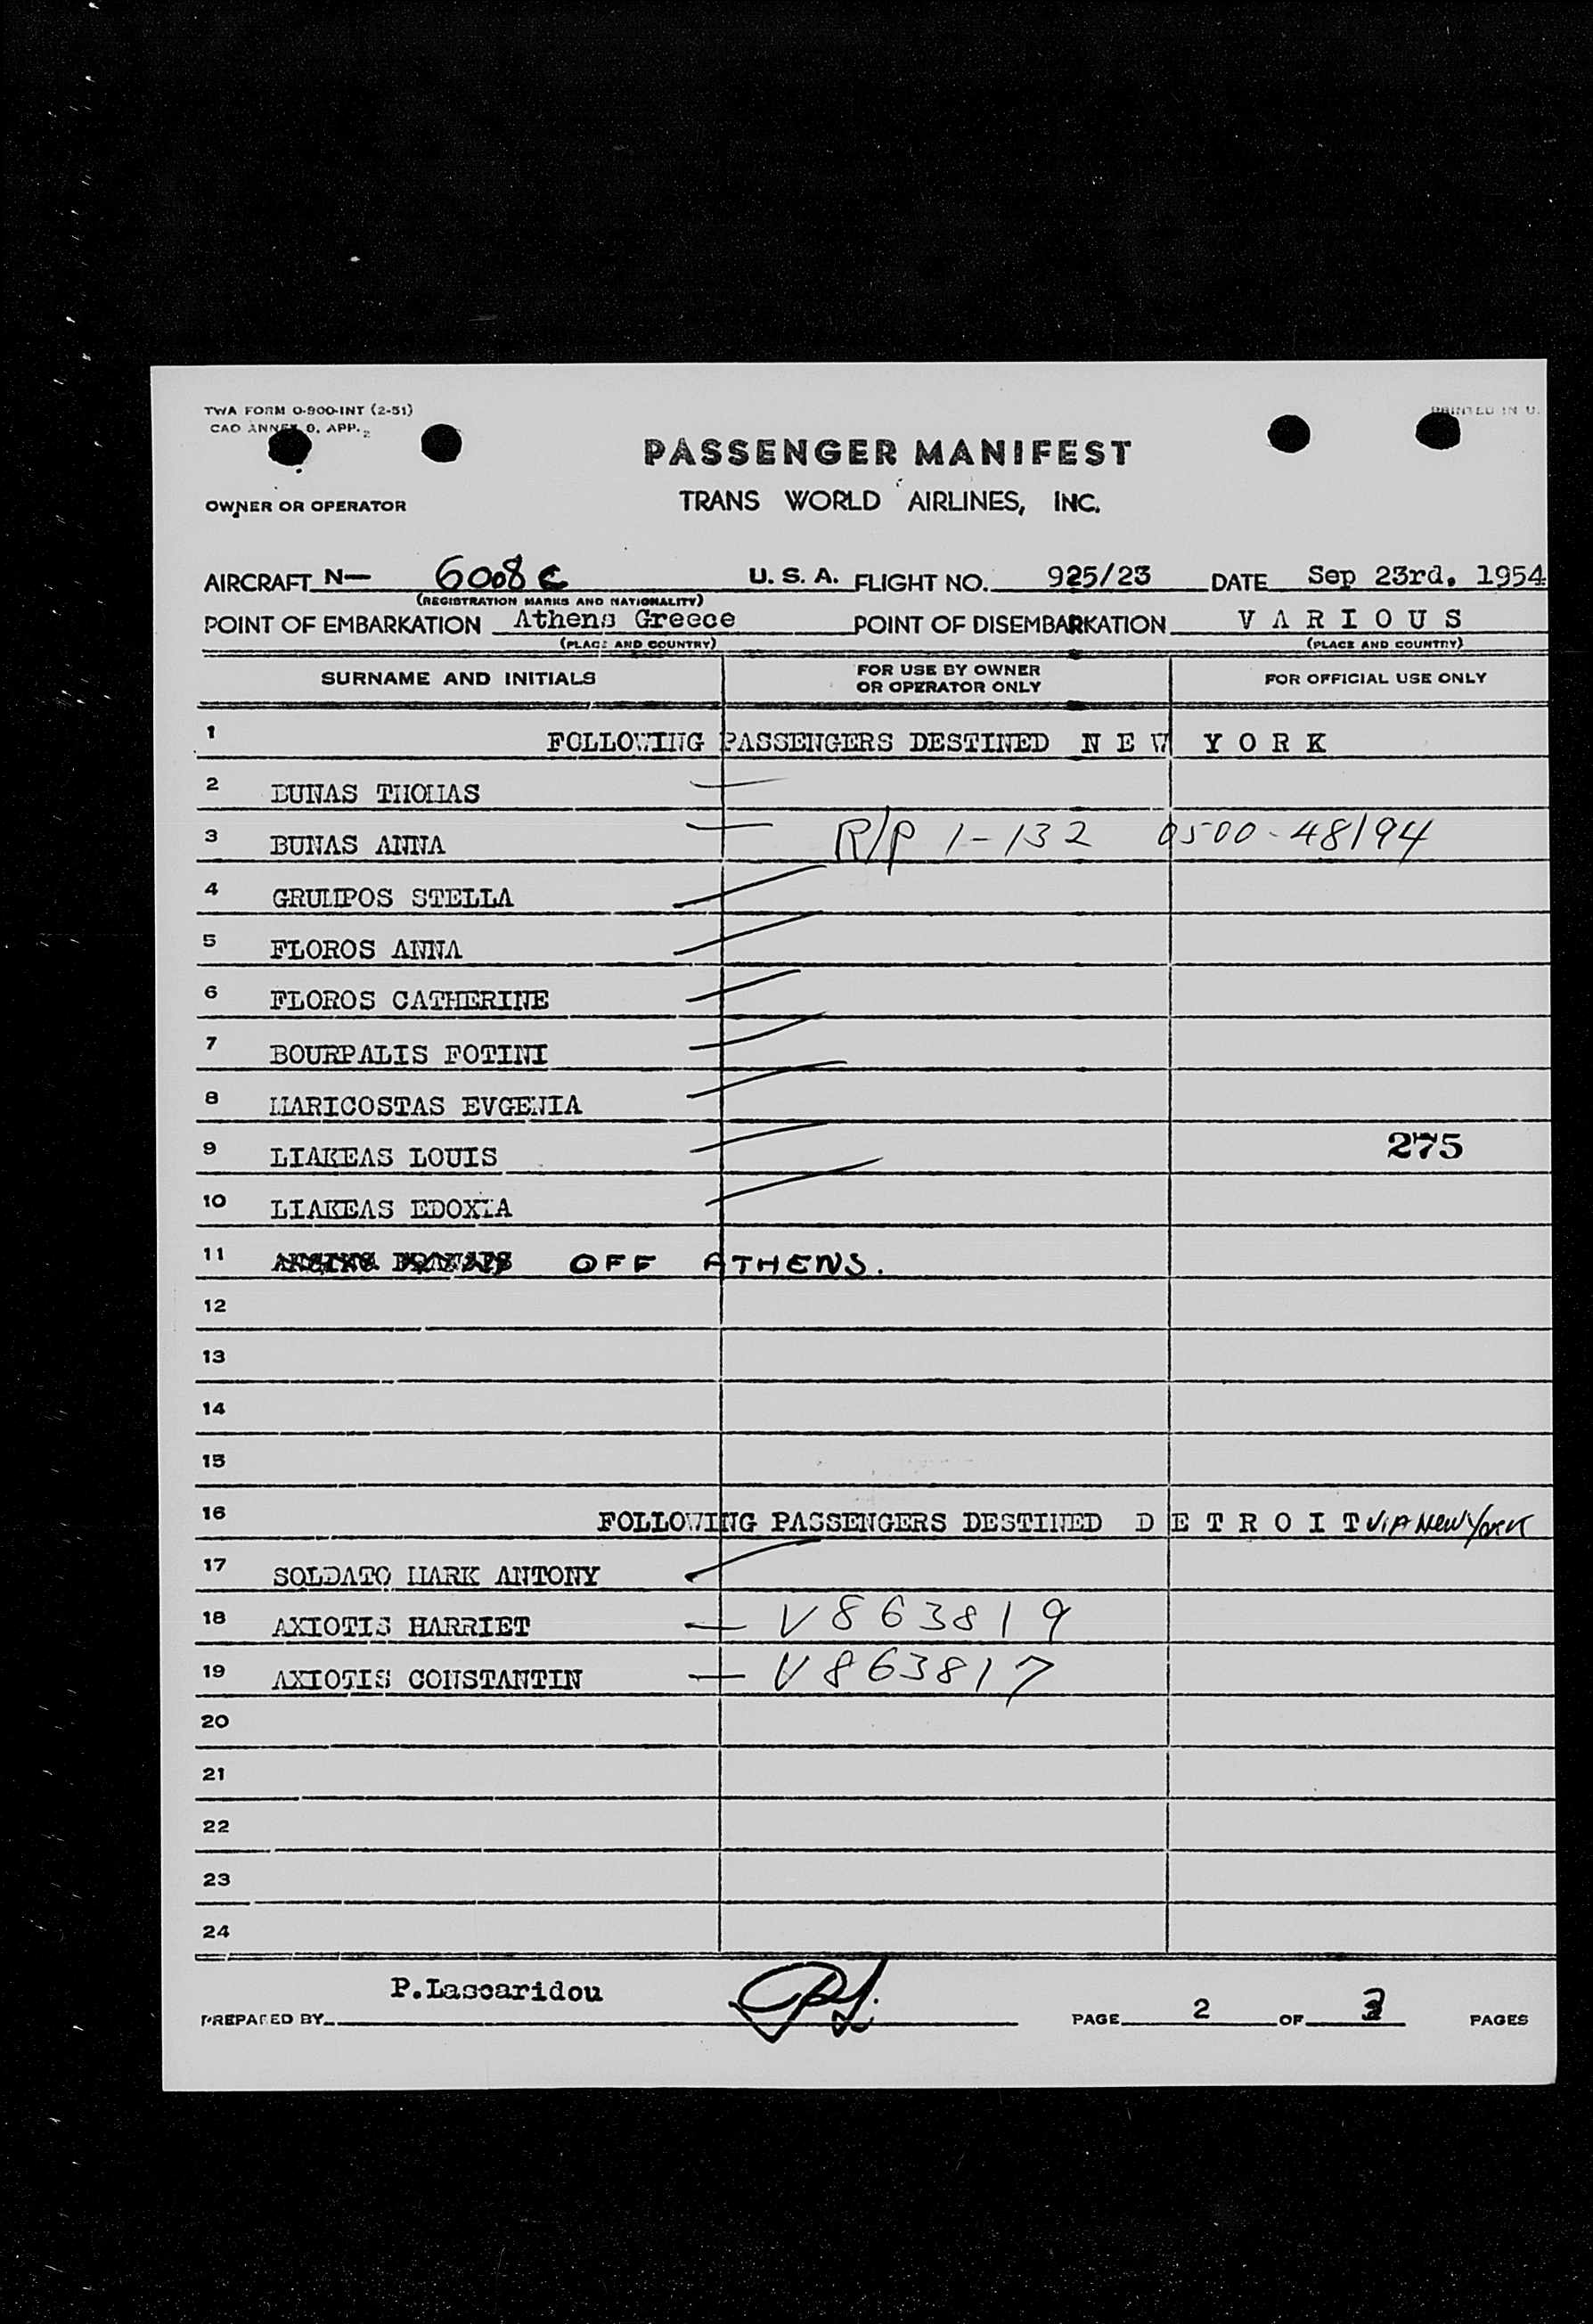 TWA FORM O-800-INT (2-51)
PRINTED IN U.
CAO ANNEX 9, APP. 2
PASSENGER MANIFEST
OWNER OR OPERATOR TRANS WORLD AIRLINES, INC.
AIRCRAFT N— 6008C U. S. A. FLIGHT NO. 925/23 DATE Sep 23rd, 1954
(REGISTRATION MARKS AND NATIONALITY)
POINT OF EMBARKATION Athens Greece POINT OF DISEMBARKATION V A R I O U S
(PLACE AND COUNTRY) (PLACE AND COUNTRY)
SURNAME AND INITIALS FOR USE BY OWNER OR OPERATOR ONLY FOR OFFICIAL USE ONLY
1 FOLLOWING PASSENGERS DESTINED N E W Y O R K
2 BUNAS THOMAS
3 BUNAS ANNA R/P 1-132 0500-48194
4 GRUMPOS STELLA
5 FLOROS ANNA
6 FLOROS CATHERINE
7 BOURPALIS FOTINI
8 MARICOSTAS EVGENIA
9 LIAKEAS LOUIS 275
10 LIAKEAS EDOXIA
11 OFF ATHENS.
12
13
14
15
16 FOLLOWING PASSENGERS DESTINED D E T R O I T VIA New York
17 SOLDATO MARK ANTONY
18 AXIOTIS HARRIET V863819
19 AXIOTIS CONSTANTIN V863817
20
21
22
23
24
P.Lascaridou PL.
PREPARED BY PAGE 2 OF 3 PAGES